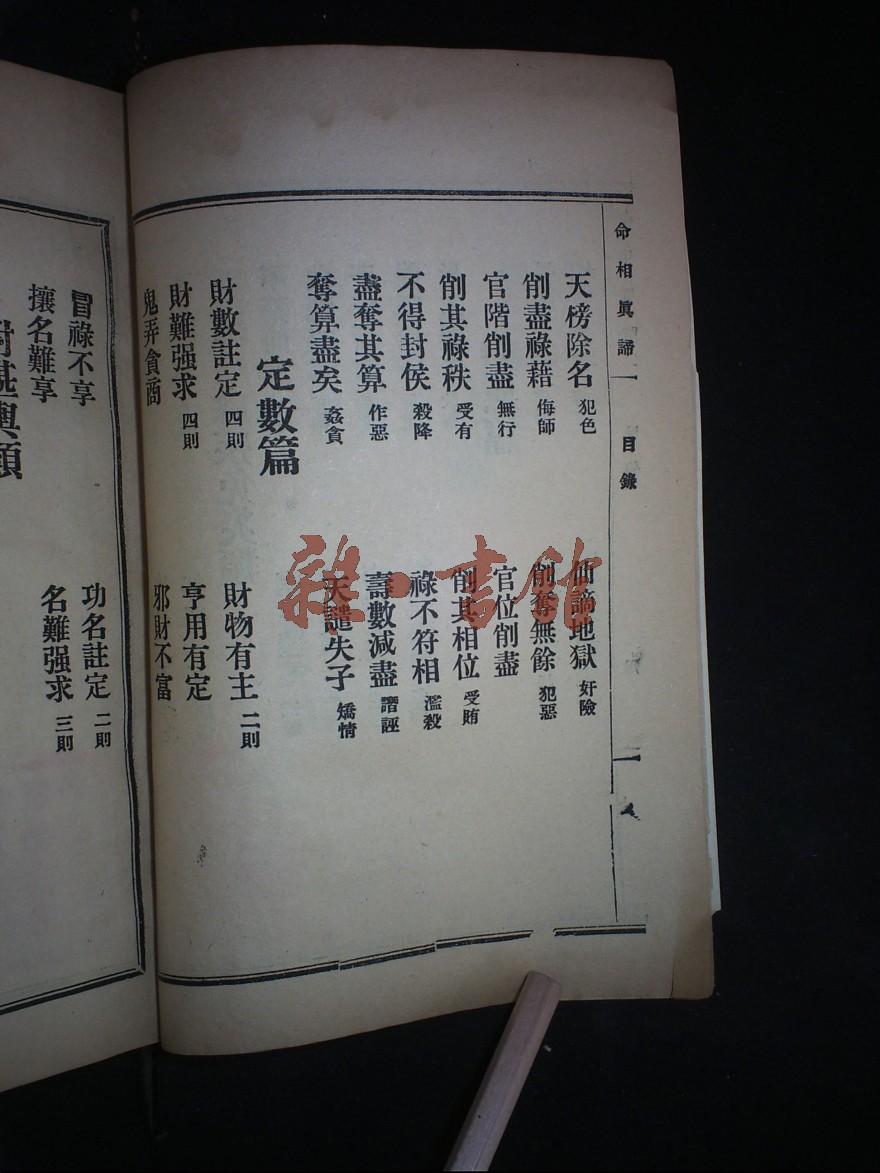 命相眞諦 目錄 一
天榜除名 犯色 仙謫地獄 奸險
削盡祿藉 侮師 削奪無餘 犯惡
官階削盡 無行 官位削盡
削其祿秩 受有 削其相位 受賄
不得封侯 殺降 祿不符相 濫殺
盡奪其算 作惡 壽數減盡 譖誣
奪算盡矣 姦貪 天譴失子 矯情
定數篇
財數註定 四則 財物有主 二則
財難强求 四則 亨用有定
鬼弄貪商 邪財不富
冒祿不享 功名註定 二則
攘名難享 名難强求 三則
雜·書館